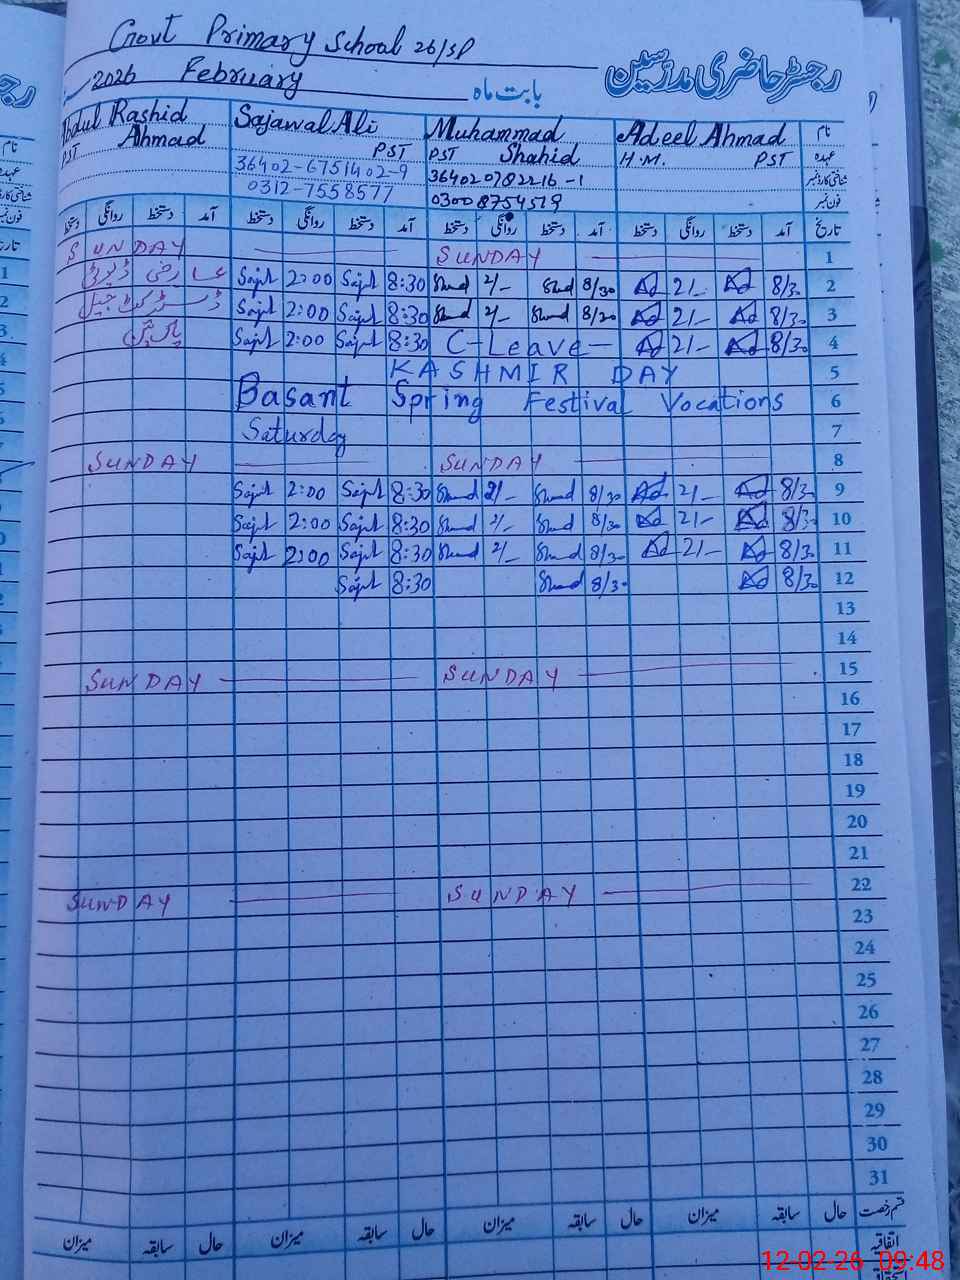 Govt Primary School 26/SP
رجسٹر حاضری مدرسین
2026 February بابت ماہ
Abdul Rashid Ahmad PST Sajawal Ali PST Muhammad Shahid PST Adeel Ahmad H.M. PST نام
عہدہ
36402-6751402-9 364020782216-1 شناختی کارڈ نمبر
0312-7558577 03008754519 فون نمبر
دستخط روانگی دستخط آمد دستخط روانگی دستخط آمد دستخط روانگی دستخط آمد دستخط روانگی دستخط آمد تاریخ
SUNDAY SUNDAY 1
عارضی ڈیوٹی Sajid 2:00 Sajid 8:30 Shad 2/- Shad 8/30 Ad 2/- Ad 8/30 2
ڈسٹرکٹ جیل Sajid 2:00 Sajid 8:30 Shad 2/- Shad 8/30 Ad 2/- Ad 8/30 3
پاکپتن Sajid 2:00 Sajid 8:30 C-Leave- Ad 2/- Ad 8/30 4
KASHMIR DAY 5
Basant Spring Festival Vocations 6
Saturday 7
SUNDAY SUNDAY 8
Sajid 2:00 Sajid 8:30 Shad 2/- Shad 8/30 Ad 2/- Ad 8/30 9
Sajid 2:00 Sajid 8:30 Shad 2/- Shad 8/30 Ad 2/- Ad 8/30 10
Sajid 2:00 Sajid 8:30 Shad 2/- Shad 8/30 Ad 2/- Ad 8/30 11
Sajid 8:30 Shad 8/30 Ad 8/30 12
13
14
SUNDAY SUNDAY 15
16
17
18
19
20
21
SUNDAY SUNDAY 22
23
24
25
26
27
28
29
30
31
میزان سابقہ حال میزان سابقہ حال میزان سابقہ حال میزان سابقہ حال قسم رخصت
اتفاقیہ
12-02-26 09:48